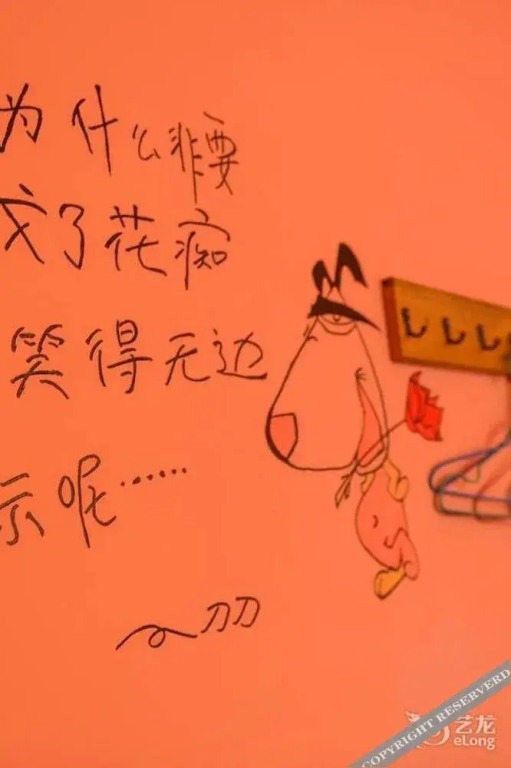 为什么非要
成了花痴
笑得无边
示呢……
~刀刀
COPYRIGHT RESERVERD
艺龙
eLong